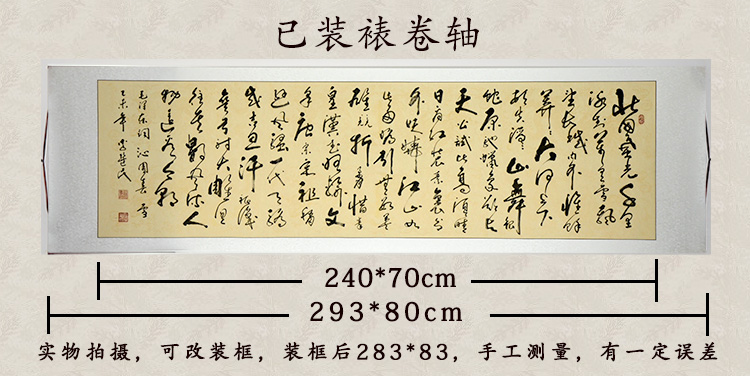 已装裱卷轴
北国风光千里
冰封万里雪飘
望长城内外惟余
莽莽大河上下
顿失滔滔山舞银
蛇原驰蜡象欲与
天公试比高须晴
日看红装素裹分
外妖娆江山如
此多娇引无数英
雄竞折腰惜秦
皇汉武略输文
采唐宗宋祖稍
逊风骚一代天骄
成吉思汗只识
弯弓射大雕俱
往矣数风流人
物还看今朝
毛泽东词 沁园春 雪
乙未年
240*70cm
293*80cm
实物拍摄，可改装框，装框后283*83，手工测量，有一定误差